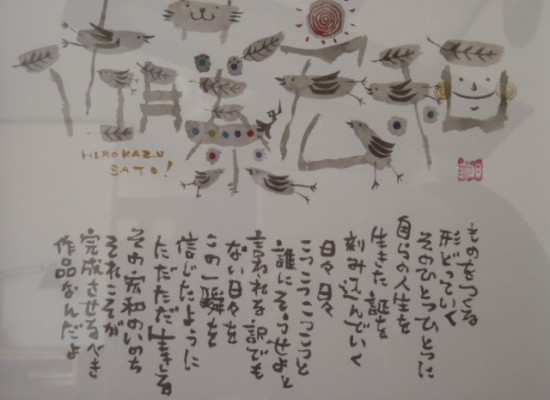 HIROKAZU
SATO!
ものをつくる
形どっていく
そのひとつひとつに
自らの人生を
生きた証を
刻み込んでいく
日々日々
こつこつこつこつと
誰にそうせよと
言われる訳でも
ない日々を
この一瞬を
信じたように
ただただ生きる
その宏和のいのち
それこそが
完成させるべき
作品なんだよ